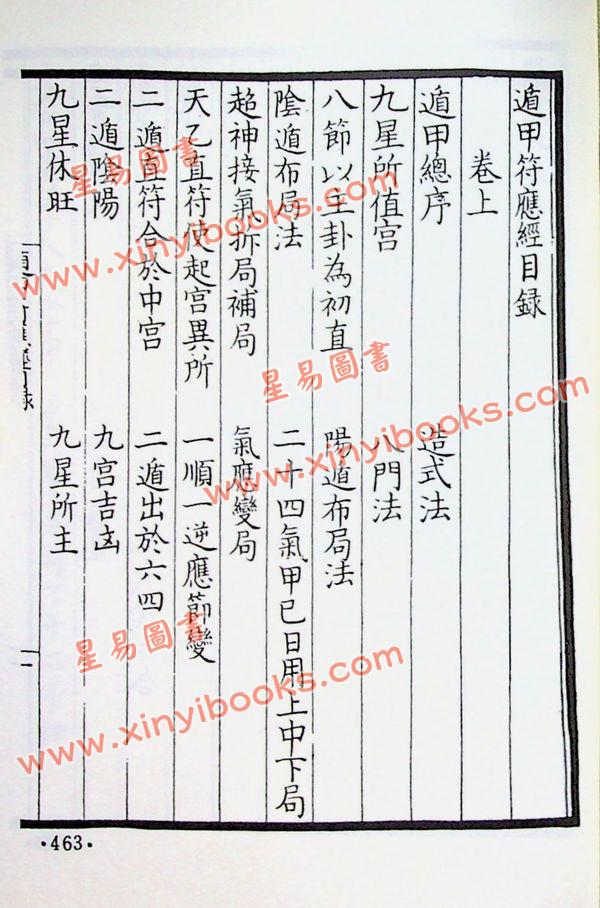 遁甲符應經目録
卷上
遁甲總序 造式法
九星所值宫 八門法
八節以主卦為初直 陽遁布局法
陰遁布局法 二十四氣甲巳日用上中下局
超神接氣拆局補局 氣應變局
天乙直符使起宫異所 一順一逆應節變
二遁直符合於中宫 二遁出於六四
二遁陰陽 九宫吉凶
九星休旺 九星所主
目録
·463·
星易圖書
www.xinyibooks.com
星易圖書
www.xinyibooks.com
星易圖書
www.xinyibooks.com